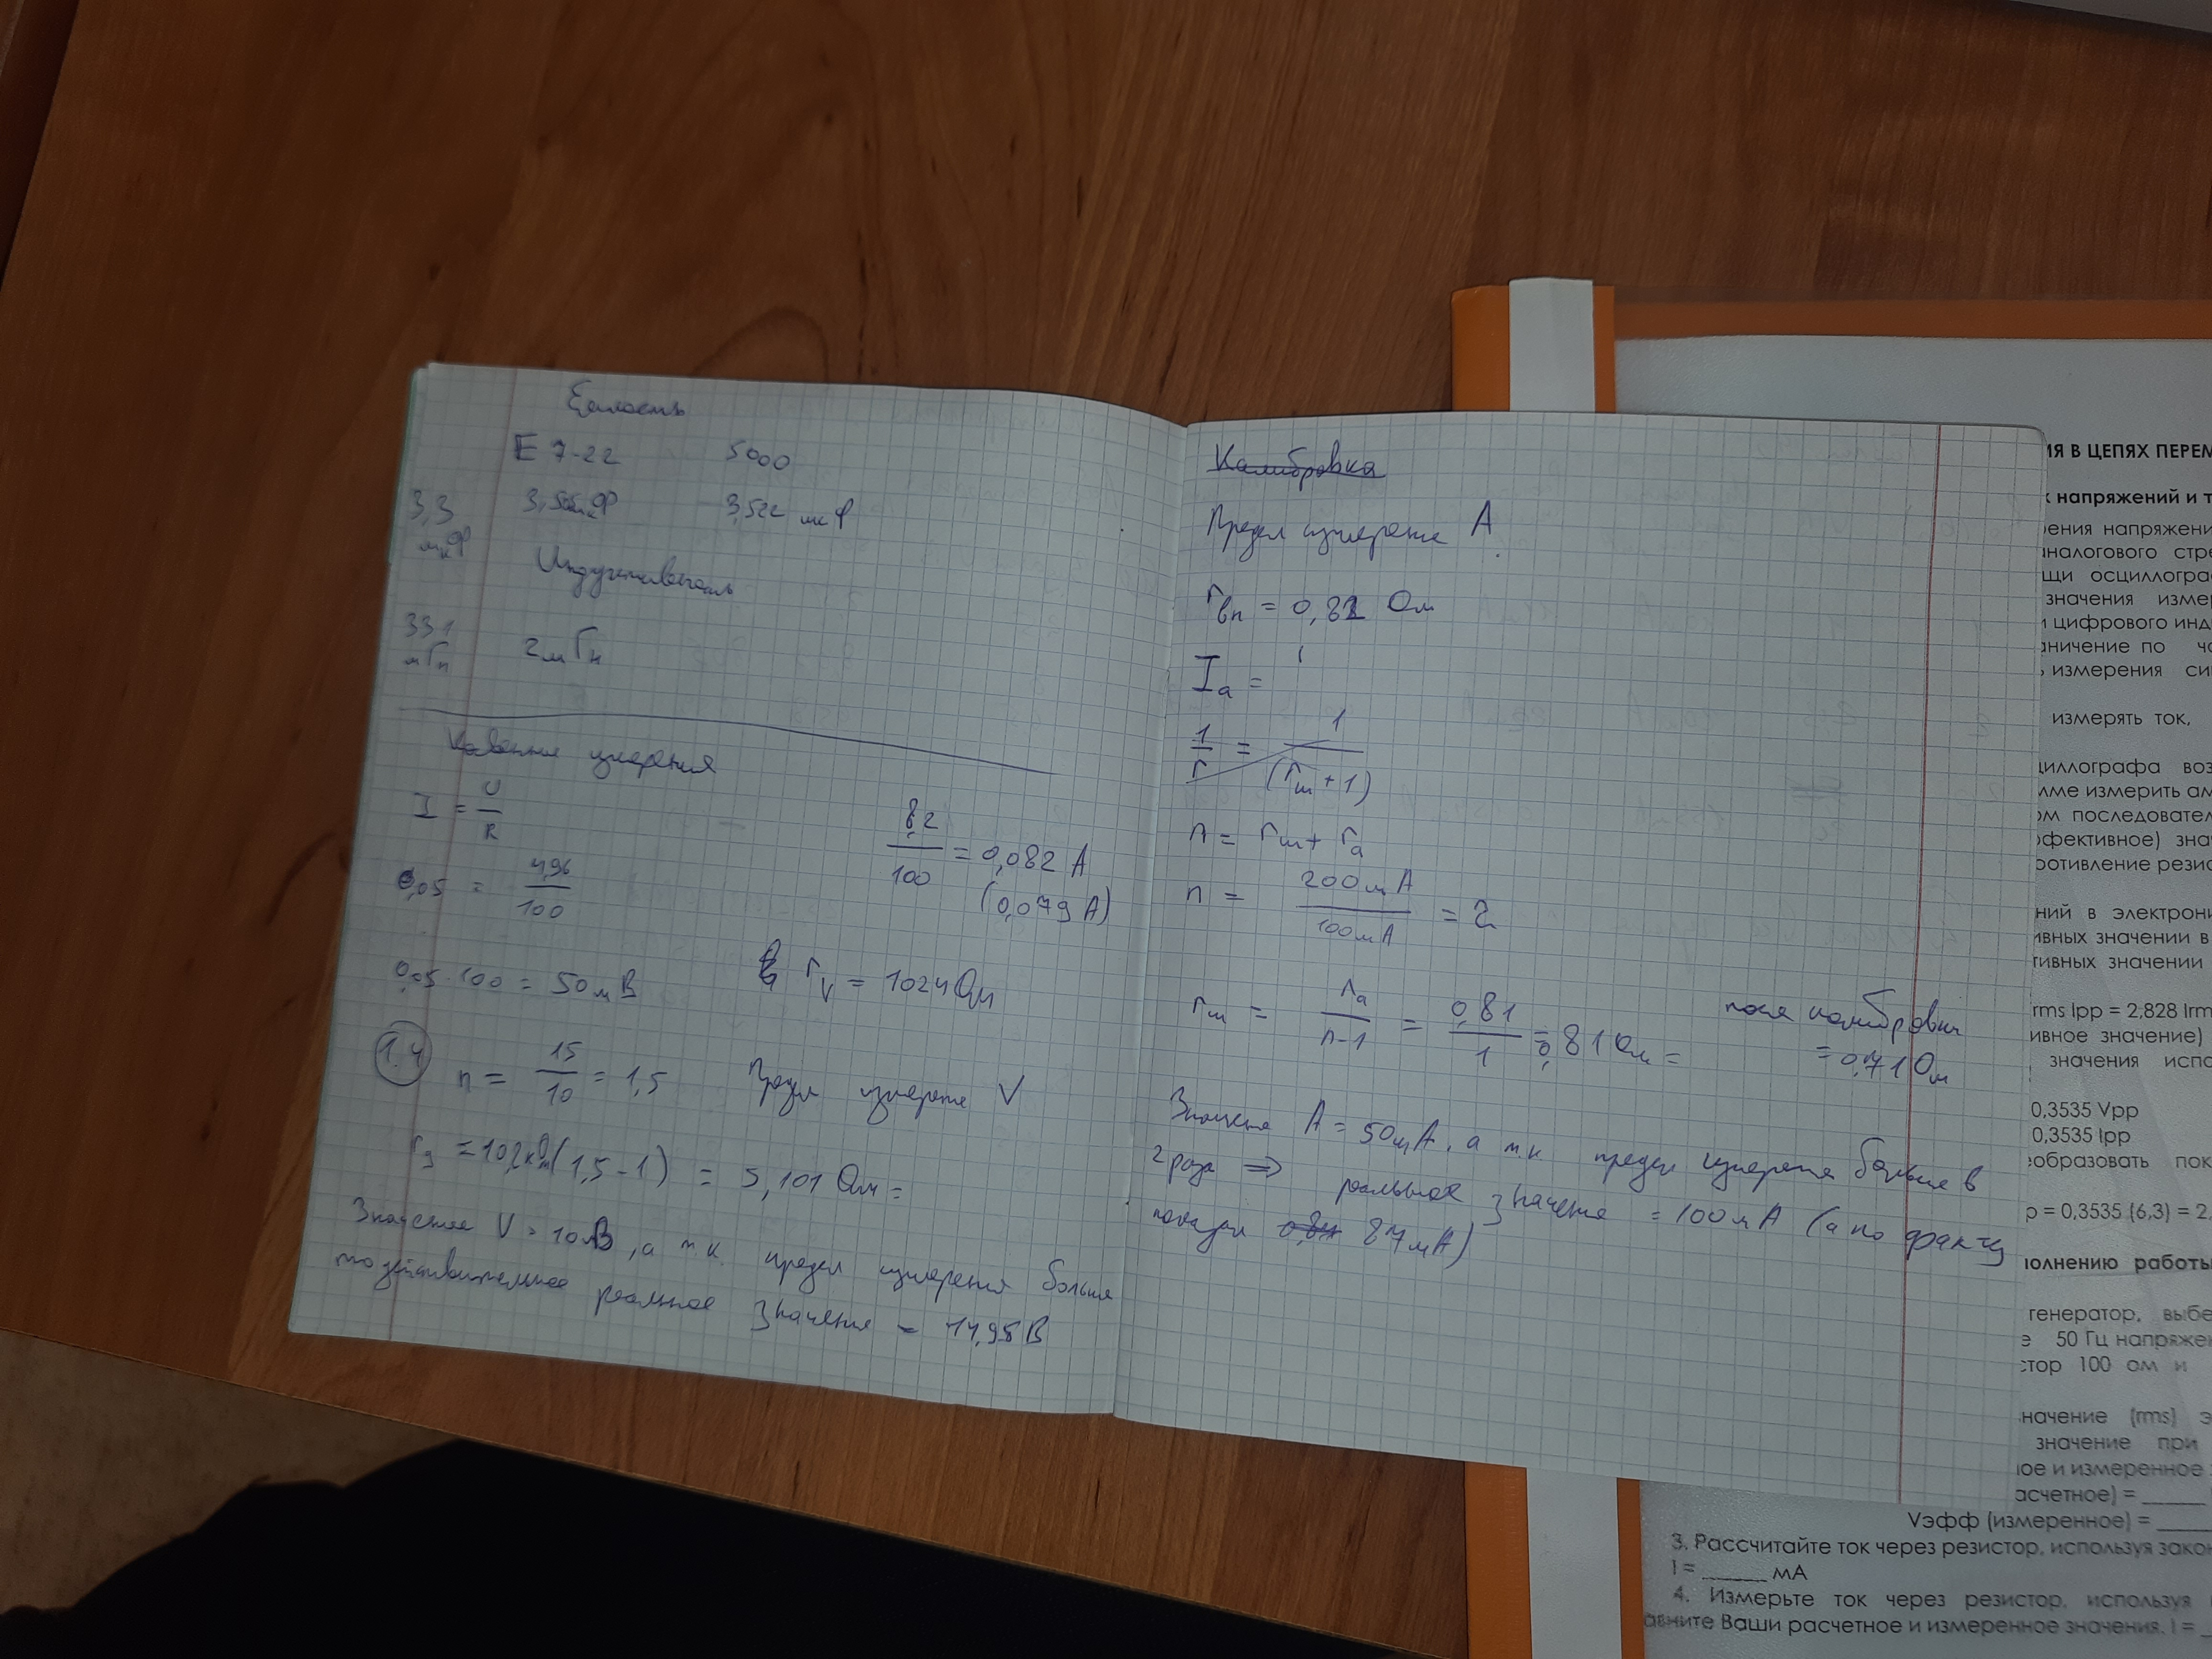 Емкость
E 7-22 5000
3,3 мкФ 3,5 мкФ 3,522 мкФ
Индуктивность
331 мГн 2мГн
Косвенные измерения
I = U / R
0,05 = 4,96 / 100
8,2 / 100 = 0,082 А
(0,079 А)
0,05 · 100 = 50мВ
r_V = 102 Ом
1.4 n = 15 / 10 = 1,5 Предел измерение V
r_g = 102 кОм (1,5 - 1) = 5,101 Ом =
Значение V = 10 В, а т.к. предел измерения больше
то действительное реальное значение = 14,95 В
Калибровка
Предел измерение А
r_вп = 0,81 Ом
I_a =
1 / r = 1 / (r_ш + 1)
n = r_ш + r_a
n = 200мА / 100мА = 2
r_ш = r_a / n-1 = 0,81 / 1 = 0,81 Ом =
после калибровки
= 0,71 Ом
Значение А = 50мА, а т.к. предел измерения больше в
2 раза ⇒ реальное значение = 100 мА (а по факту
показал 87мА)
Я В ЦЕПЯХ ПЕРЕМ
напряжений и т
рения напряжени
аналогового стре
щи осциллогра
значения измер
и цифрового инд
аничение по
измерения си
измерять ток,
циллографа воз
мме измерить ам
ом последовател
ффективное) зна
ротивление резис
ний в электрони
ивных значении в
тивных значении
rms Ipp = 2,828 Irm
ивное значение)
значения испо
0,3535 Vpp
0,3535 Ipp
еобразовать пок
p = 0,3535 (6,3) = 2,
полнению работы
генератор, выбе
50 Гц напряже
стор 100 ом и
начение (rms) э
значение при
ое и измеренное
асчетное) = _____
Vэфф (измеренное) = ___
3. Рассчитайте ток через резистор, используя зако
I = _____ мА
4. Измерьте ток через резистор, используя
авните Ваши расчетное и измеренное значения. I = _